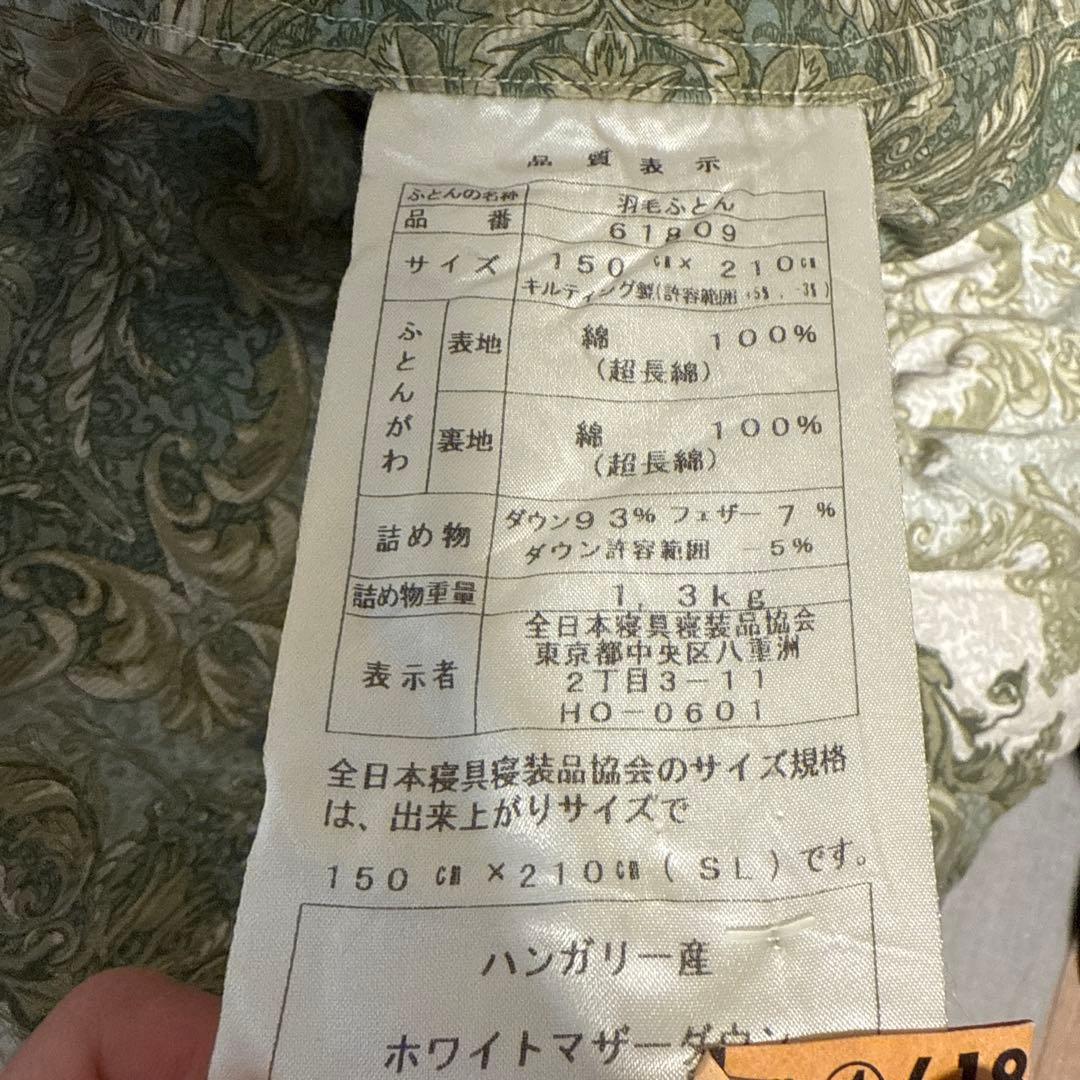 品質表示
ふとんの名称 羽毛ふとん
品番 61809
サイズ 150㎝×210㎝
キルティング製(許容範囲+5%,-3%)
ふとんがわ
表地 綿 100%
(超長綿)
裏地 綿 100%
(超長綿)
詰め物 ダウン93% フェザー7%
ダウン許容範囲 -5%
詰め物重量 1,3kg
表示者 全日本寝具寝装品協会
東京都中央区八重洲
2丁目3-11
HO-0601
全日本寝具寝装品協会のサイズ規格
は、出来上がりサイズで
150㎝×210㎝(SL)です。
ハンガリー産
ホワイトマザーダウン